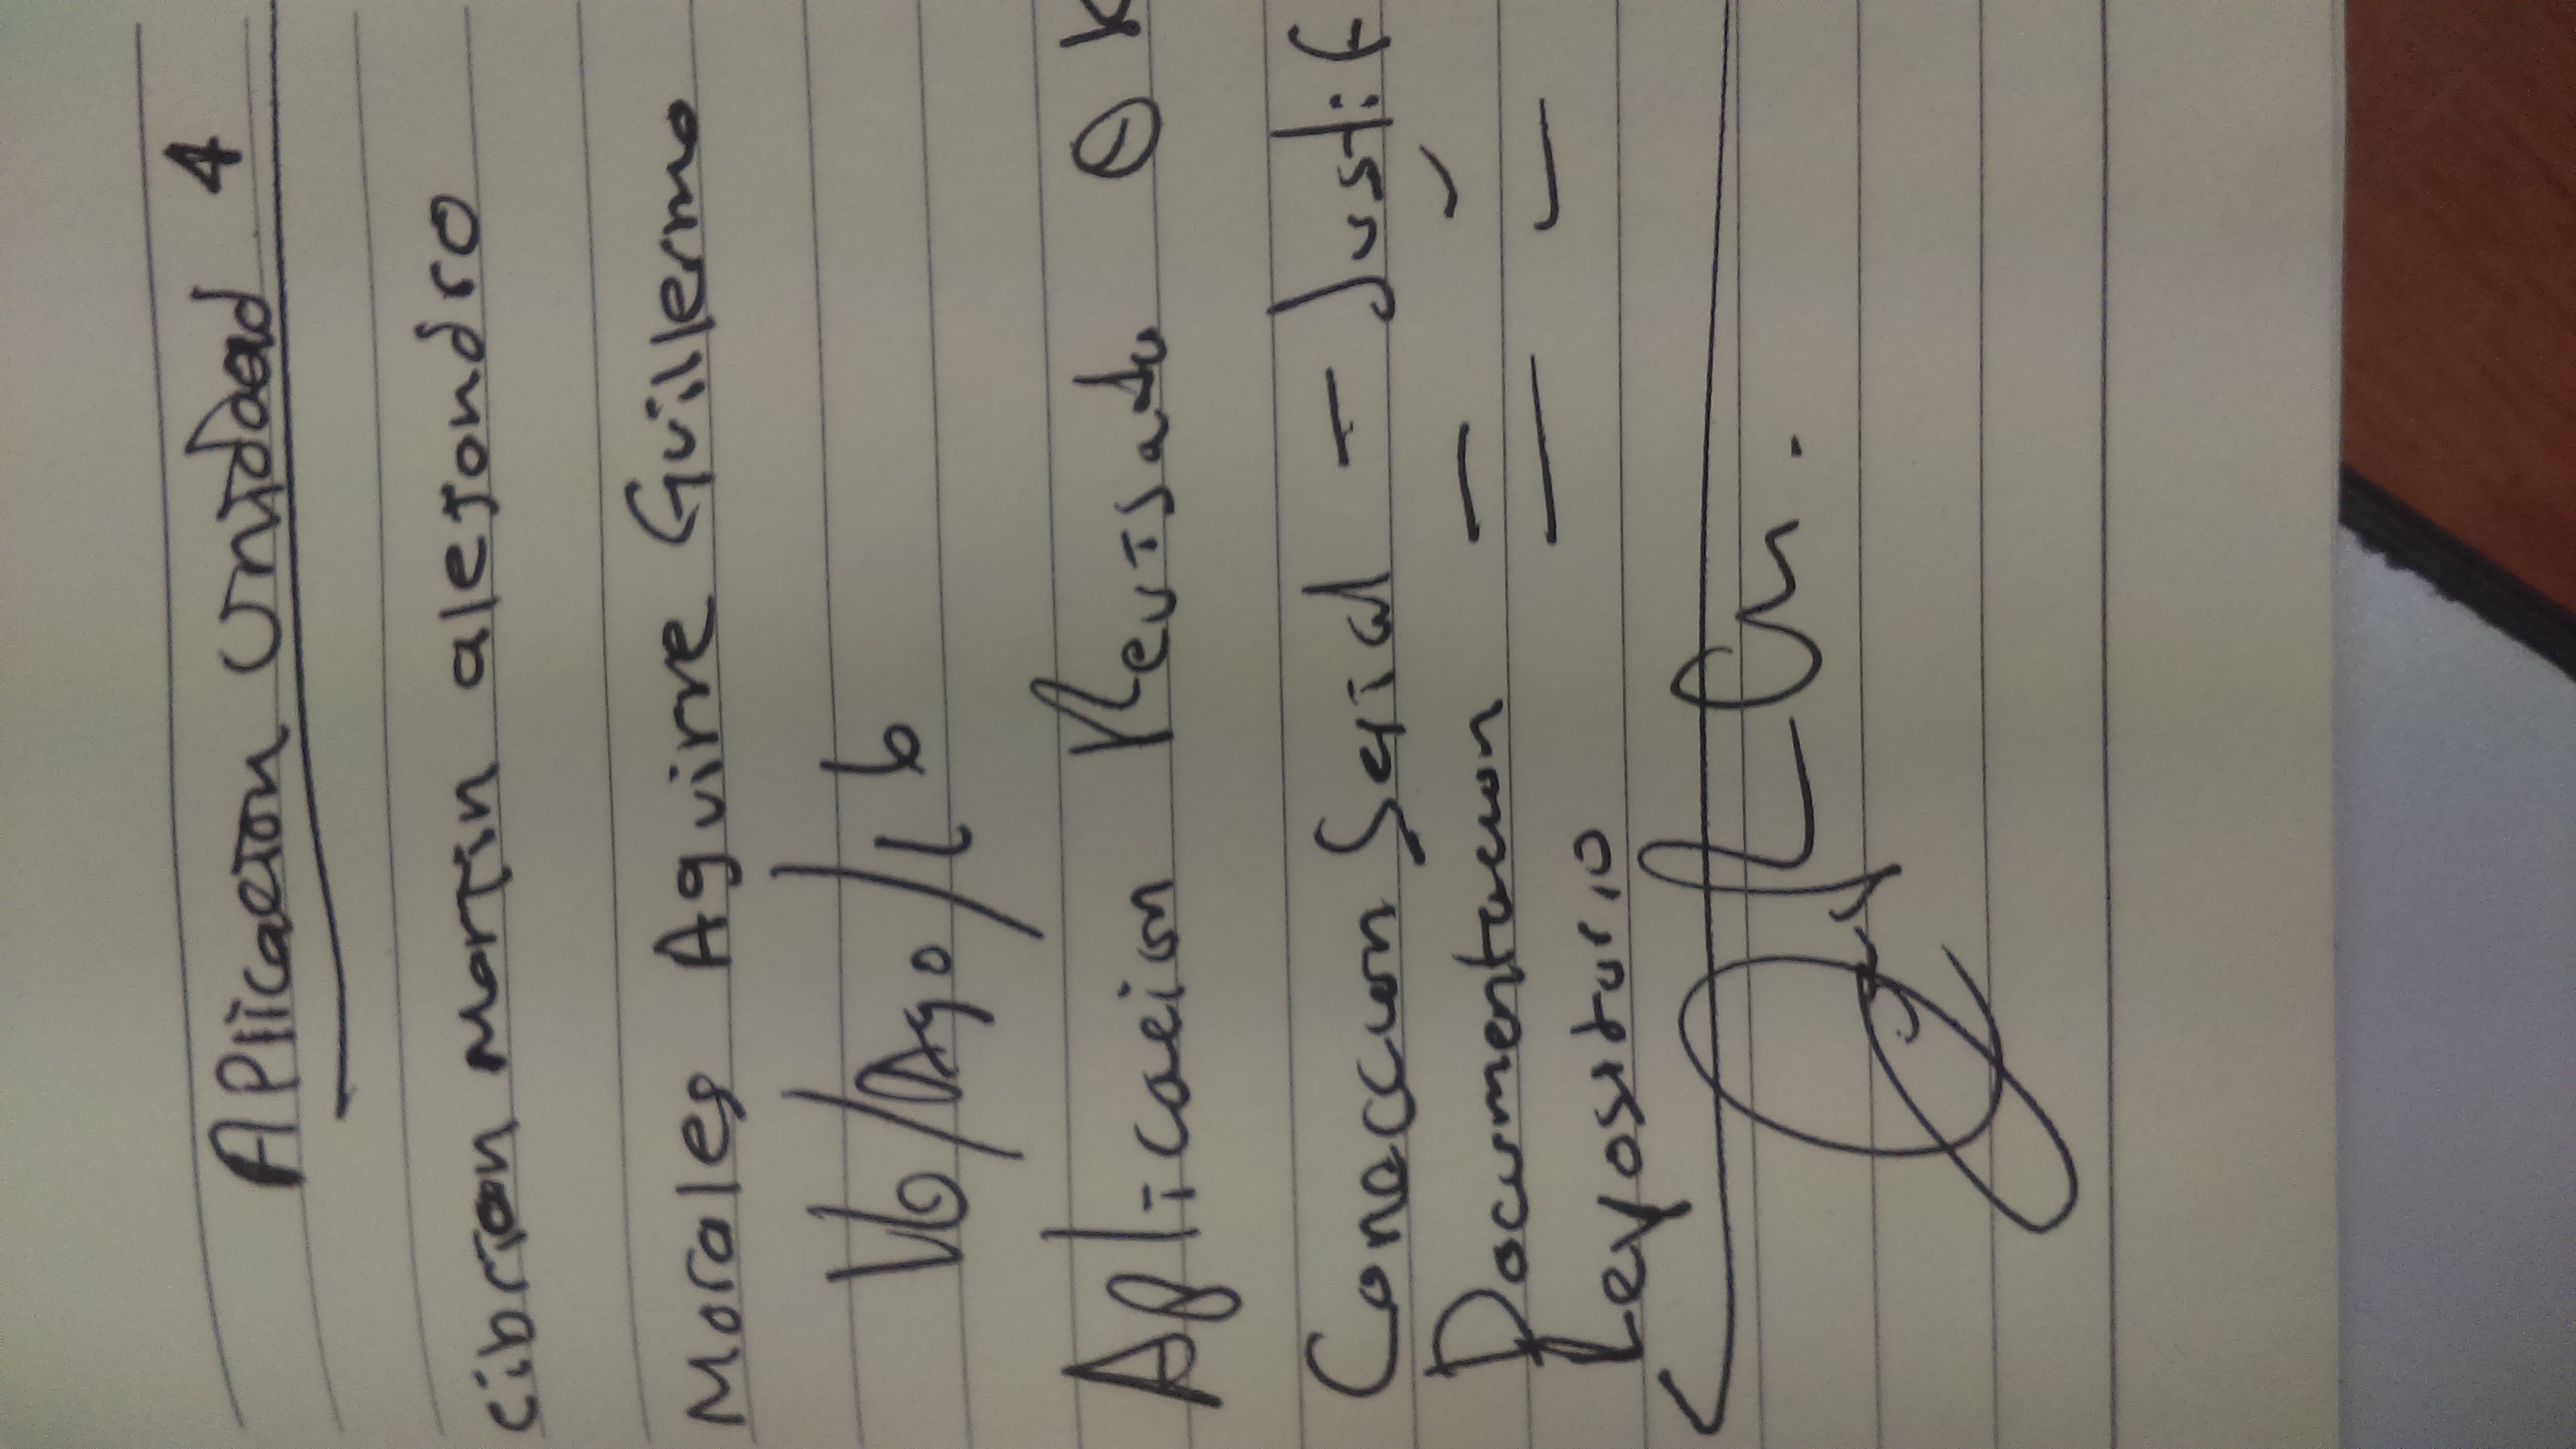 APlicacion unidad 4
cibrian martin alejandro
Morales Aguirre Guillermo
16/Ago/16
Aplicacion Revisado OK
Conexcion Serial — Justif
Documentacion — ✓
Repositorio — —